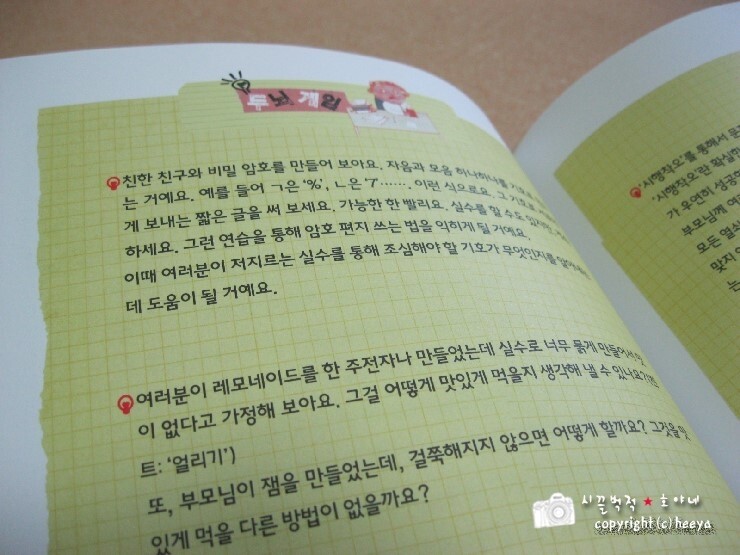 두뇌 게임
친한 친구와 비밀 암호를 만들어 보아요. 자음과 모음 하나하나를 기호로
는 거예요. 예를 들어 ㄱ은 '%', ㄴ은 '7'…… 이런 식으로요. 그 기호로
게 보내는 짧은 글을 써 보세요. 가능한 한 빨리요. 실수를 할 수도
하세요. 그런 연습을 통해 암호 편지 쓰는 법을 익히게 될 거예요.
이때 여러분이 저지르는 실수를 통해 조심해야 할 기호가 무엇인지를
데 도움이 될 거예요.
여러분이 레모네이드를 한 주전자나 만들었는데 실수로 너무 묽게 만들어서 맛
이 없다고 가정해 보아요. 그걸 어떻게 맛있게 먹을지 생각해 낼 수 있나요?(힌
트: '얼리기')
또, 부모님이 잼을 만들었는데, 걸쭉해지지 않으면 어떻게 할까요? 그것을 맛
있게 먹을 다른 방법이 없을까요?
'시행착오'를 통해서 문
'시행착오'란 확실한
가 우연히 성공하
부모님께 여
모든 열쇠
맞지
는
시끌벅적 ★ 호야네
copyright(c)heeya